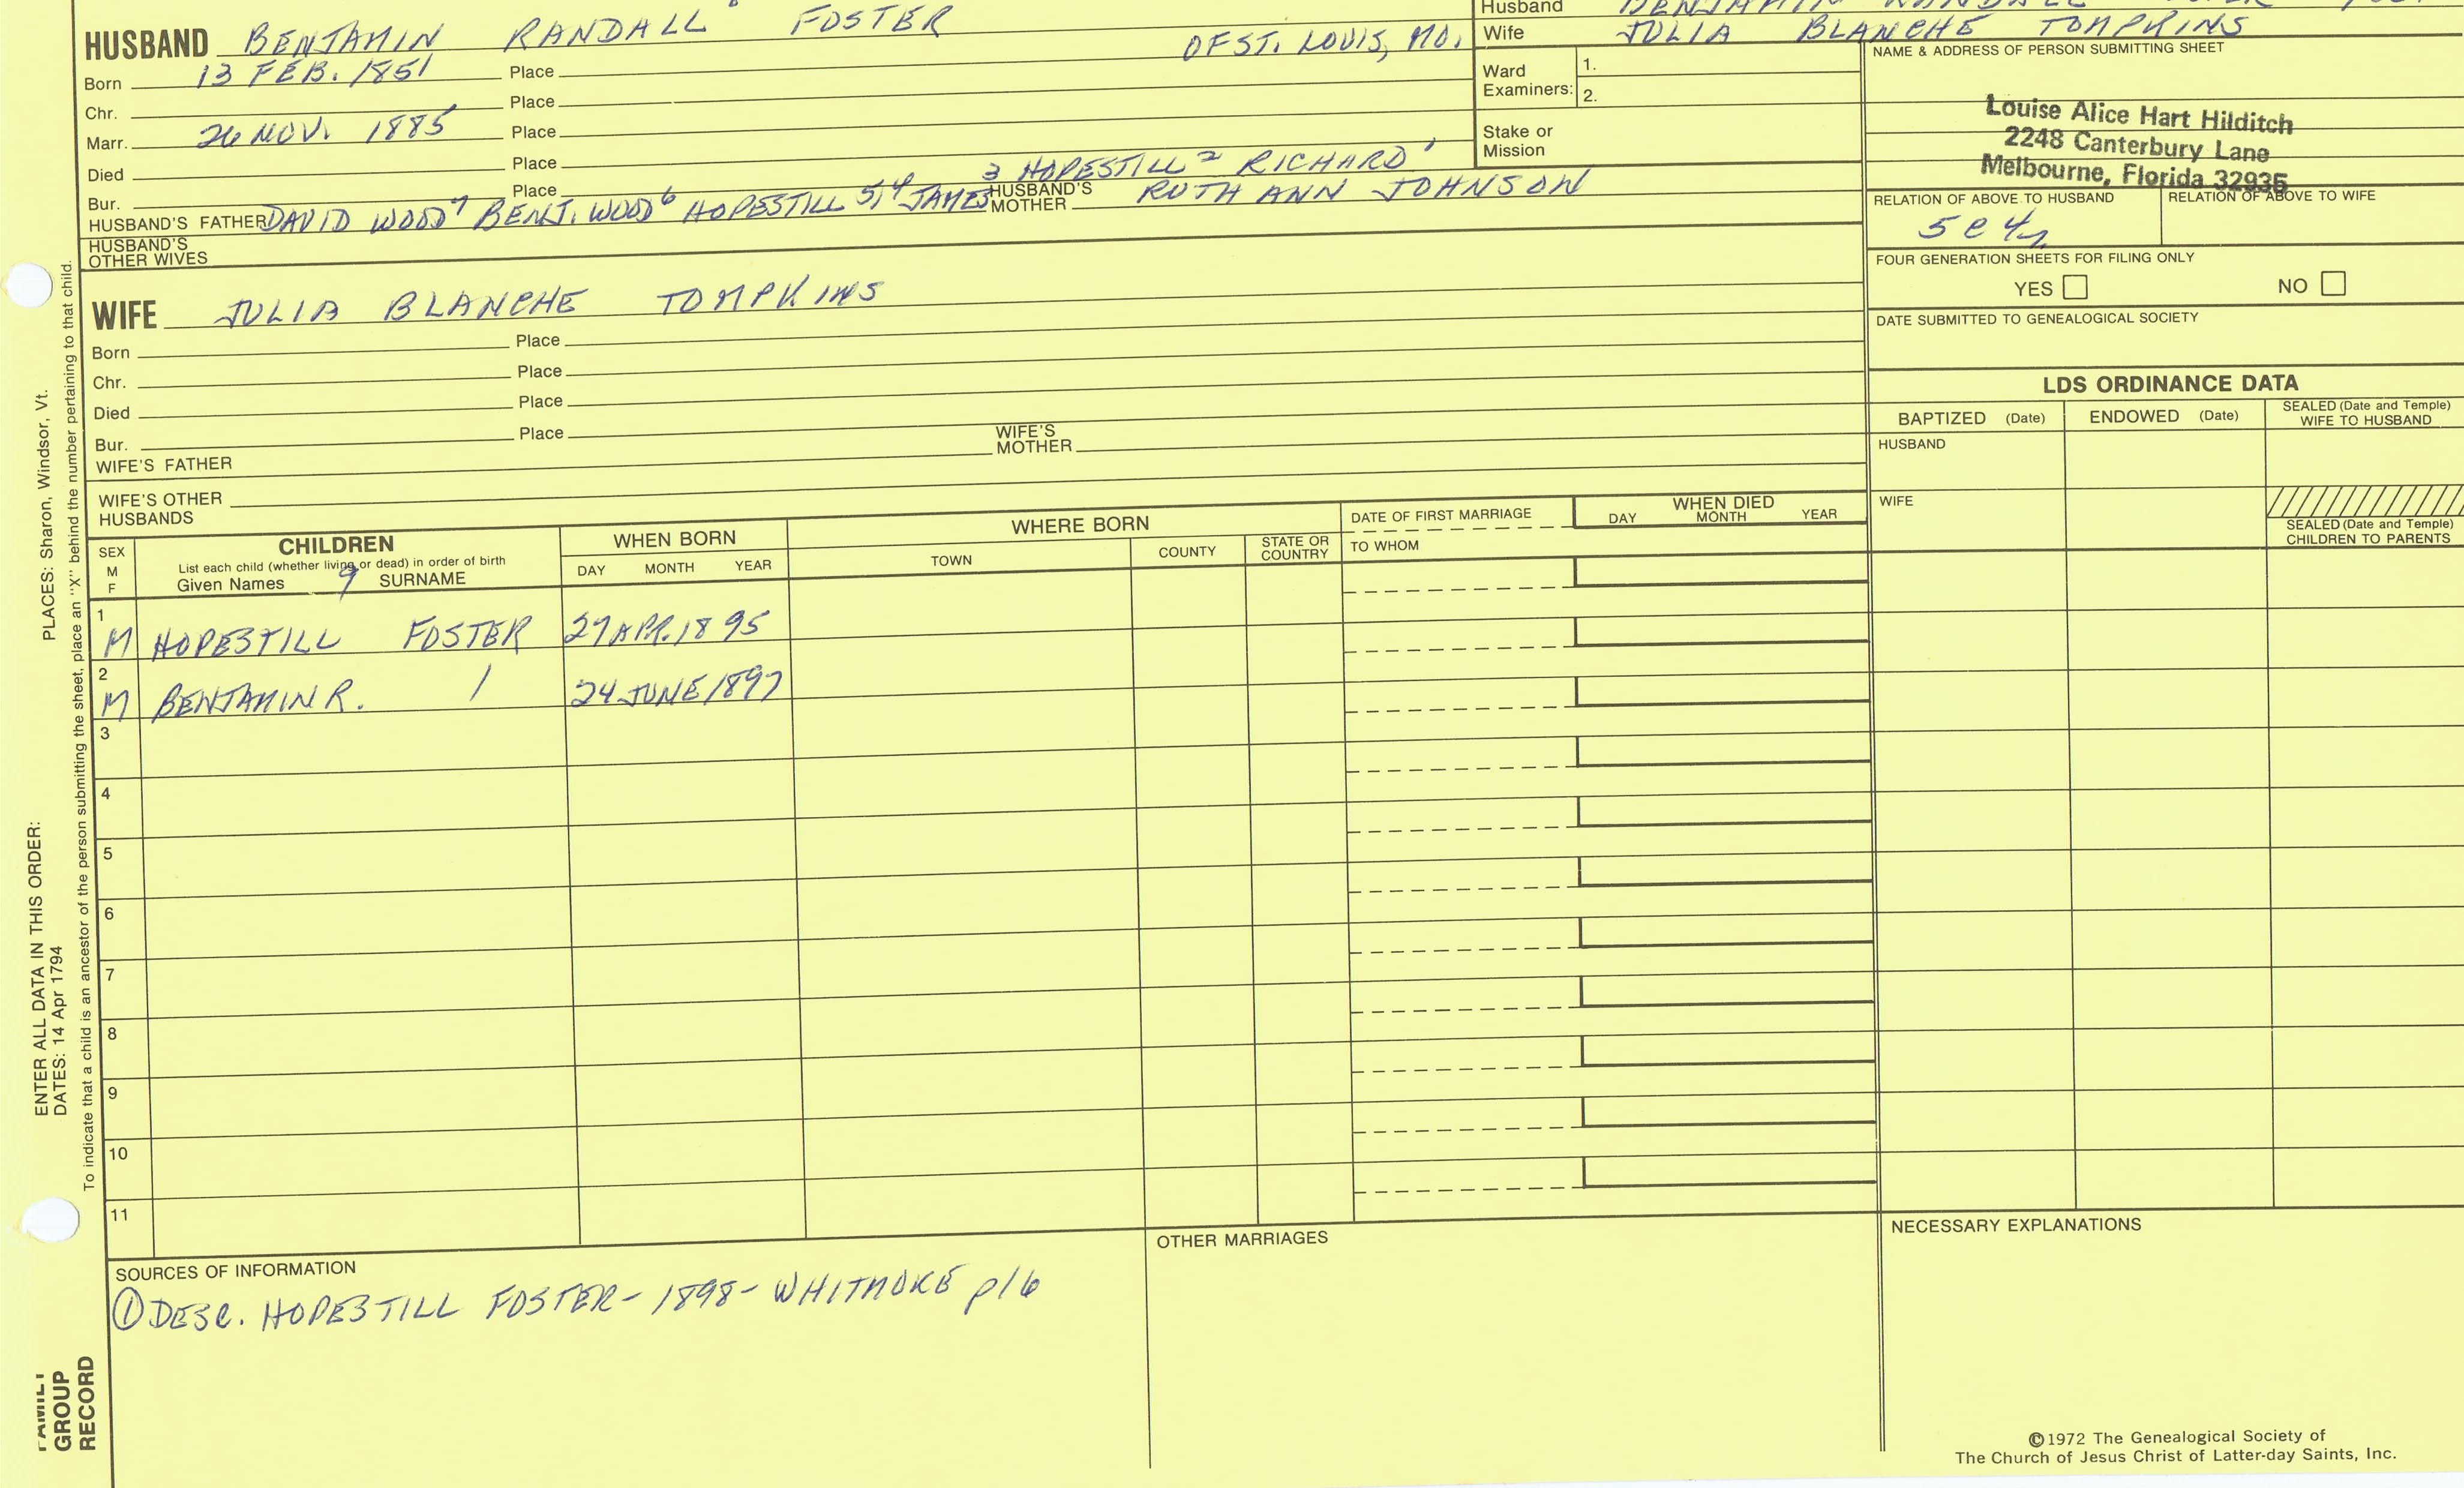 HUSBAND BENJAMIN RANDALL FOSTER OF ST. LOUIS, MO.
Born 13 FEB. 1851 Place
Chr. Place
Marr. 26 NOV. 1885 Place
Died Place
Bur. Place
3 HOPESTILL 2 RICHARD 1
HUSBAND'S FATHER DAVID WOOD 7 BENJ. WOOD 6 HOPESTILL 5,4 JAMES HUSBAND'S MOTHER RUTH ANN JOHNSON
HUSBAND'S
OTHER WIVES
Husband
Wife JULIA BLANCHE TOMPKINS
Ward
Examiners: 1.
2.
Stake or
Mission
NAME & ADDRESS OF PERSON SUBMITTING SHEET
Louise Alice Hart Hilditch
2248 Canterbury Lane
Melbourne, Florida 32935
RELATION OF ABOVE TO HUSBAND RELATION OF ABOVE TO WIFE
5 C 4
FOUR GENERATION SHEETS FOR FILING ONLY
YES NO
DATE SUBMITTED TO GENEALOGICAL SOCIETY
WIFE JULIA BLANCHE TOMPKINS
Born Place
Chr. Place
Died Place
Bur. Place
WIFE'S FATHER WIFE'S MOTHER
WIFE'S OTHER
HUSBANDS
LDS ORDINANCE DATA
BAPTIZED (Date) ENDOWED (Date) SEALED (Date and Temple) WIFE TO HUSBAND
HUSBAND
WIFE
SEALED (Date and Temple)
CHILDREN TO PARENTS
SEX
M
F
CHILDREN
List each child (whether living or dead) in order of birth
Given Names 9 SURNAME
WHEN BORN
DAY MONTH YEAR
WHERE BORN
TOWN COUNTY STATE OR COUNTRY
DATE OF FIRST MARRIAGE
TO WHOM
WHEN DIED
DAY MONTH YEAR
1
M HOPESTILL FOSTER 27 APR. 1895
2
M BENJAMIN R. / 24 JUNE 1897
3
4
5
6
7
8
9
10
11
SOURCES OF INFORMATION
① DESC. HOPESTILL FOSTER - 1898 - WHITMORE p16
OTHER MARRIAGES
NECESSARY EXPLANATIONS
©1972 The Genealogical Society of
The Church of Jesus Christ of Latter-day Saints, Inc.
ENTER ALL DATA IN THIS ORDER:
DATES: 14 Apr 1794 PLACES: Sharon, Windsor, Vt.
To indicate that a child is an ancestor of the person submitting the sheet, place an "X" behind the number pertaining to that child.
FAMILY
GROUP
RECORD